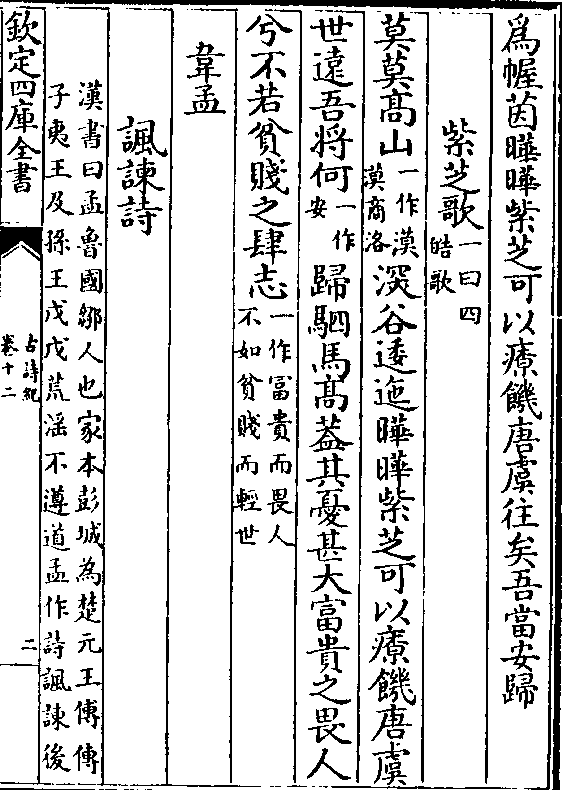 爲幄茵曄曄紫芝可以療饑唐虞往矣吾當安歸
紫芝歌一曰四皓歌
莫莫髙山一作漠漠商洛深谷逶迤曄曄紫芝可以療饑唐虞
世遠吾將何一作安歸駟馬髙葢其憂甚大富貴之畏人
兮不若貧賤之肆志一作富貴而畏人不如貧賤而輕世
韋孟
諷諫詩
漢書曰孟魯國鄒人也家本彭城為楚元王傅傅
子夷王及孫王戊戊荒滛不遵道孟作詩諷諫後
欽定四庫全書
古詩紀
卷十二
二